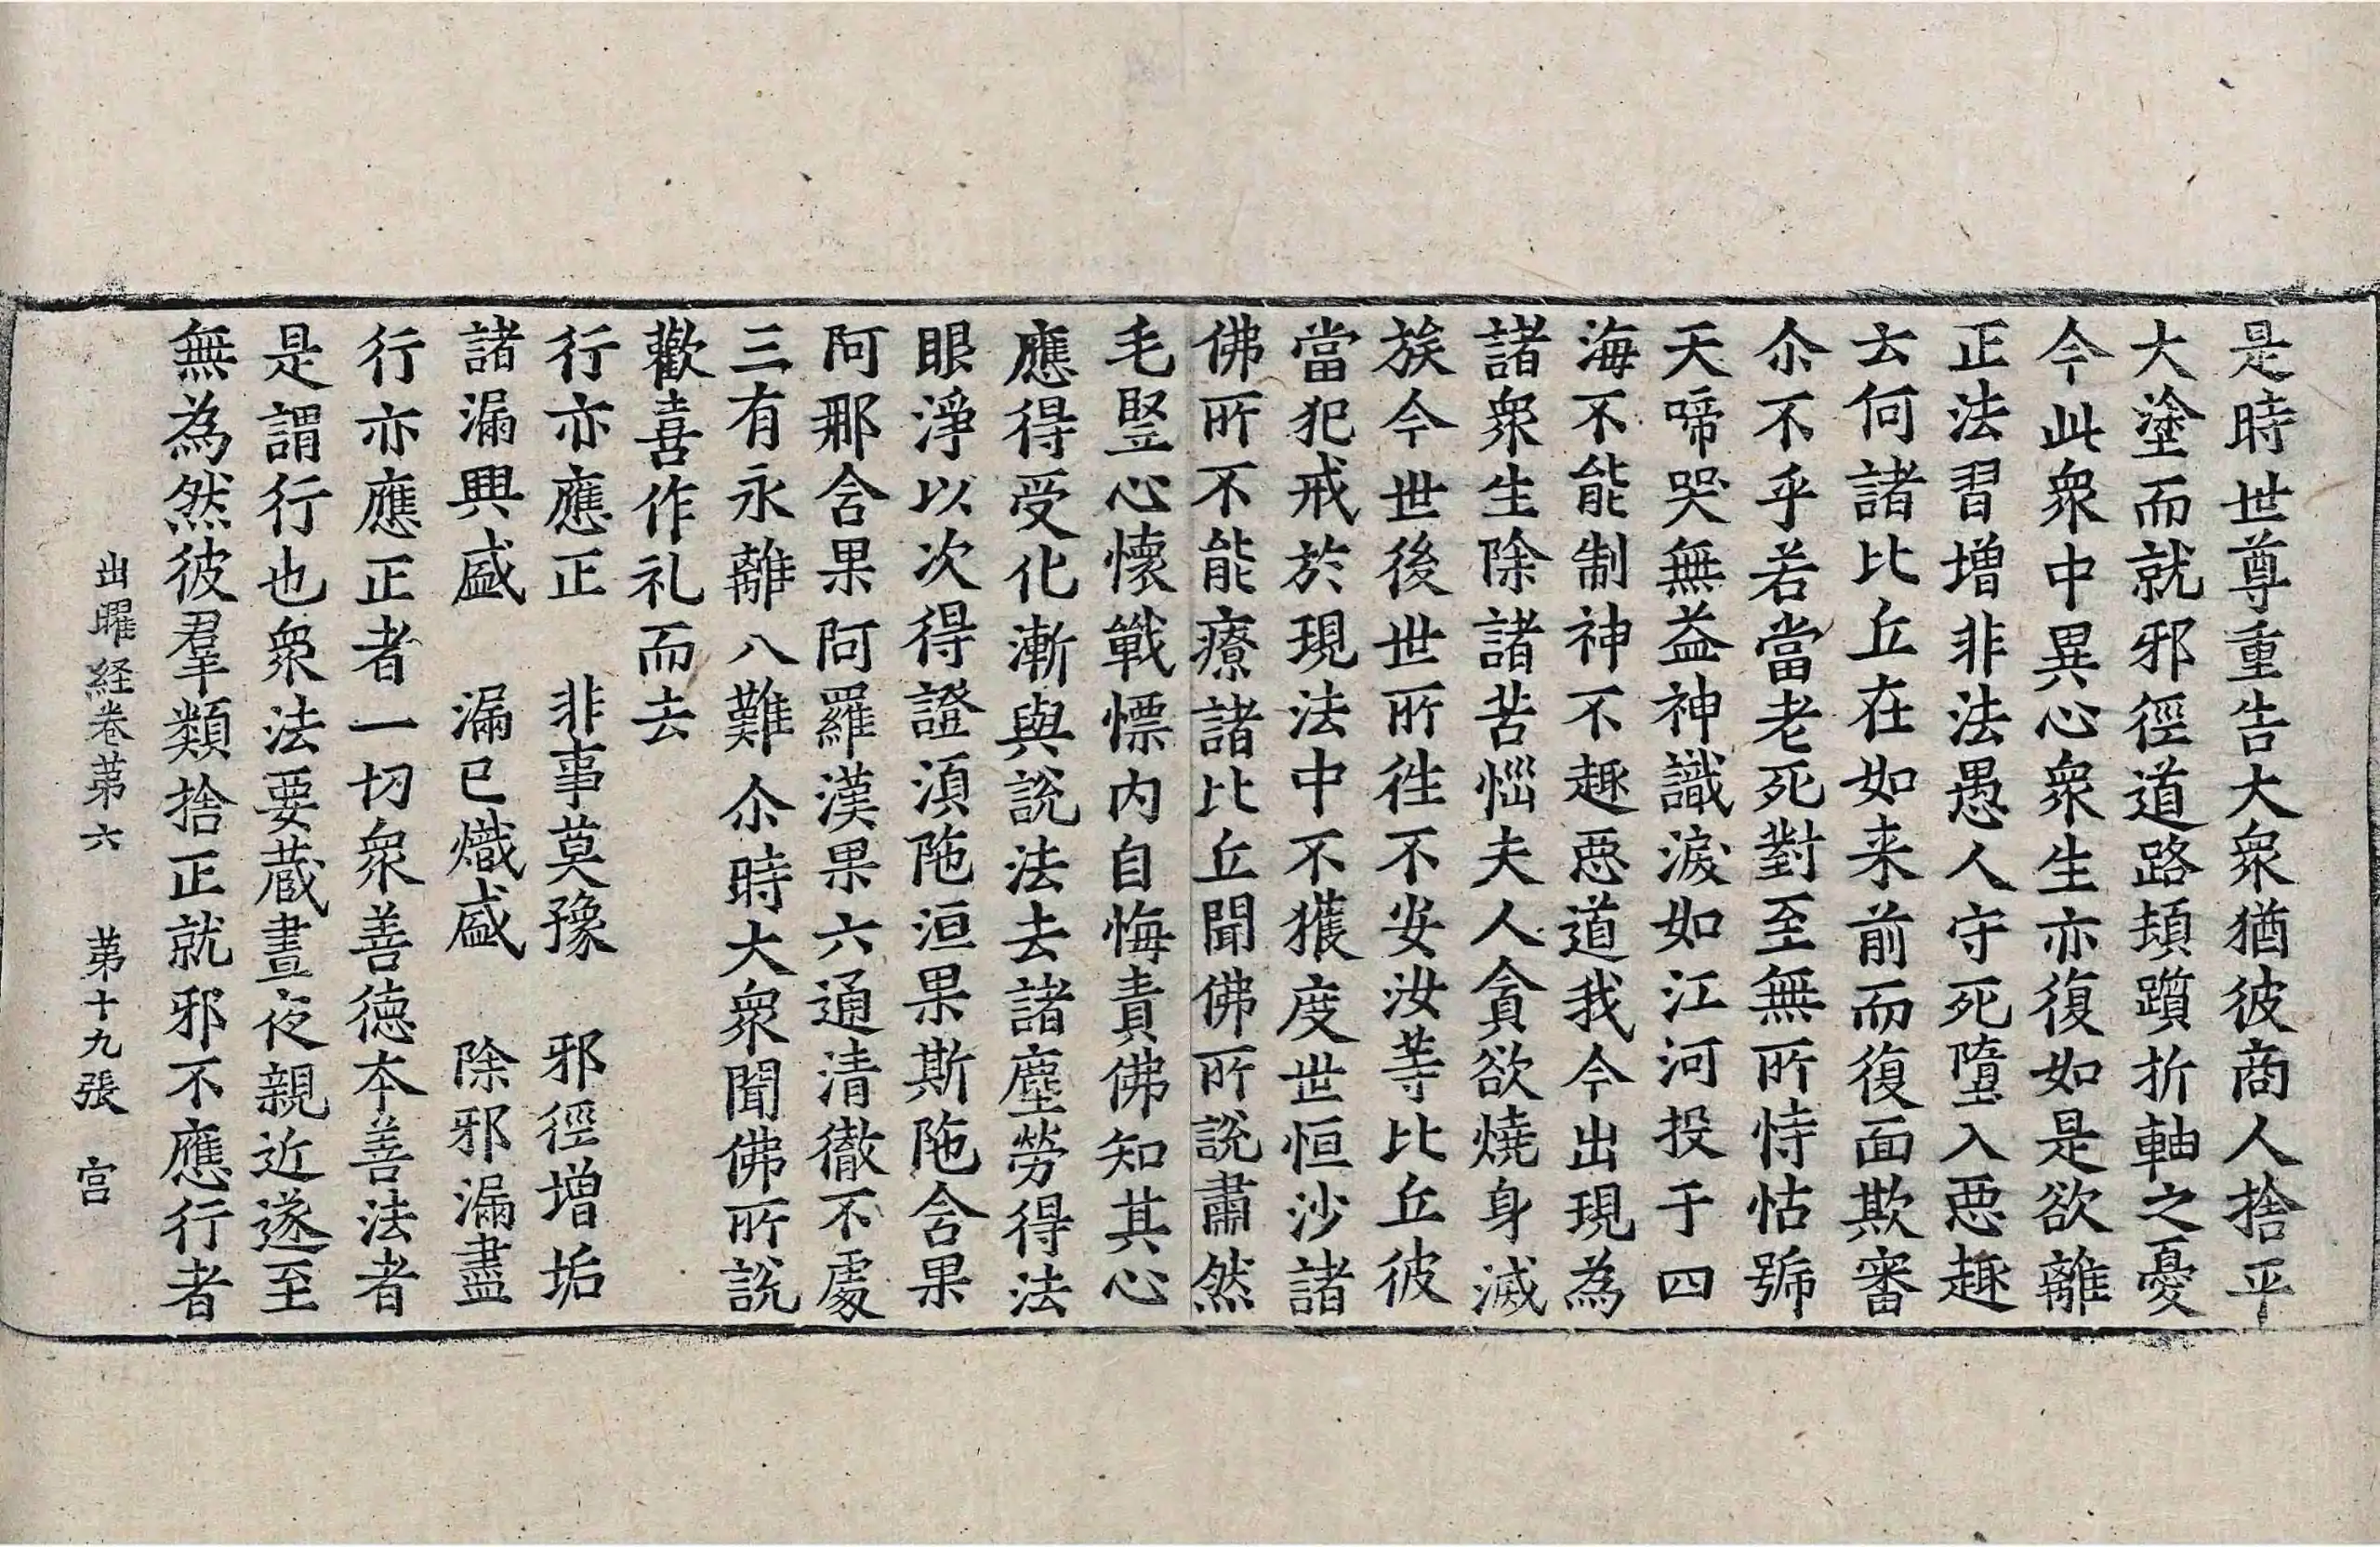 是時世尊重告大衆猶彼商人捨平
大塗而就邪徑道路頓躓折軸之憂
今此衆中異心衆生亦復如是欲離
正法習增非法愚人守死墮入惡趣
云何諸比丘在如来前而復面欺審
尒不乎若當老死對至無所恃怙號
天啼哭無益神識淚如江河投于四
海不能制神不趣惡道我今出現為
諸衆生除諸苦惱夫人貪欲燒身滅
族今世後世所徃不安汝等比丘彼
當犯戒於現法中不獲度世恒沙諸
佛所不能療諸比丘聞佛所說肅然
毛竪心懷戰慓内自悔責佛知其心
應得受化漸與說法去諸塵勞得法
眼淨以次得證湏陁洹果斯陁含果
阿那含果阿羅漢果六通清徹不處
三有永離八難尒時大衆聞佛所說
歡喜作礼而去
行亦應正　非事莫豫　邪徑增垢
諸漏興盛　漏已熾盛　除邪漏盡
行亦應正者一切衆善德本善法者
是謂行也衆法要蔵晝夜親近遂至
無為然彼羣類捨正就邪不應行者
出曜経卷苐六　苐十九張　宫